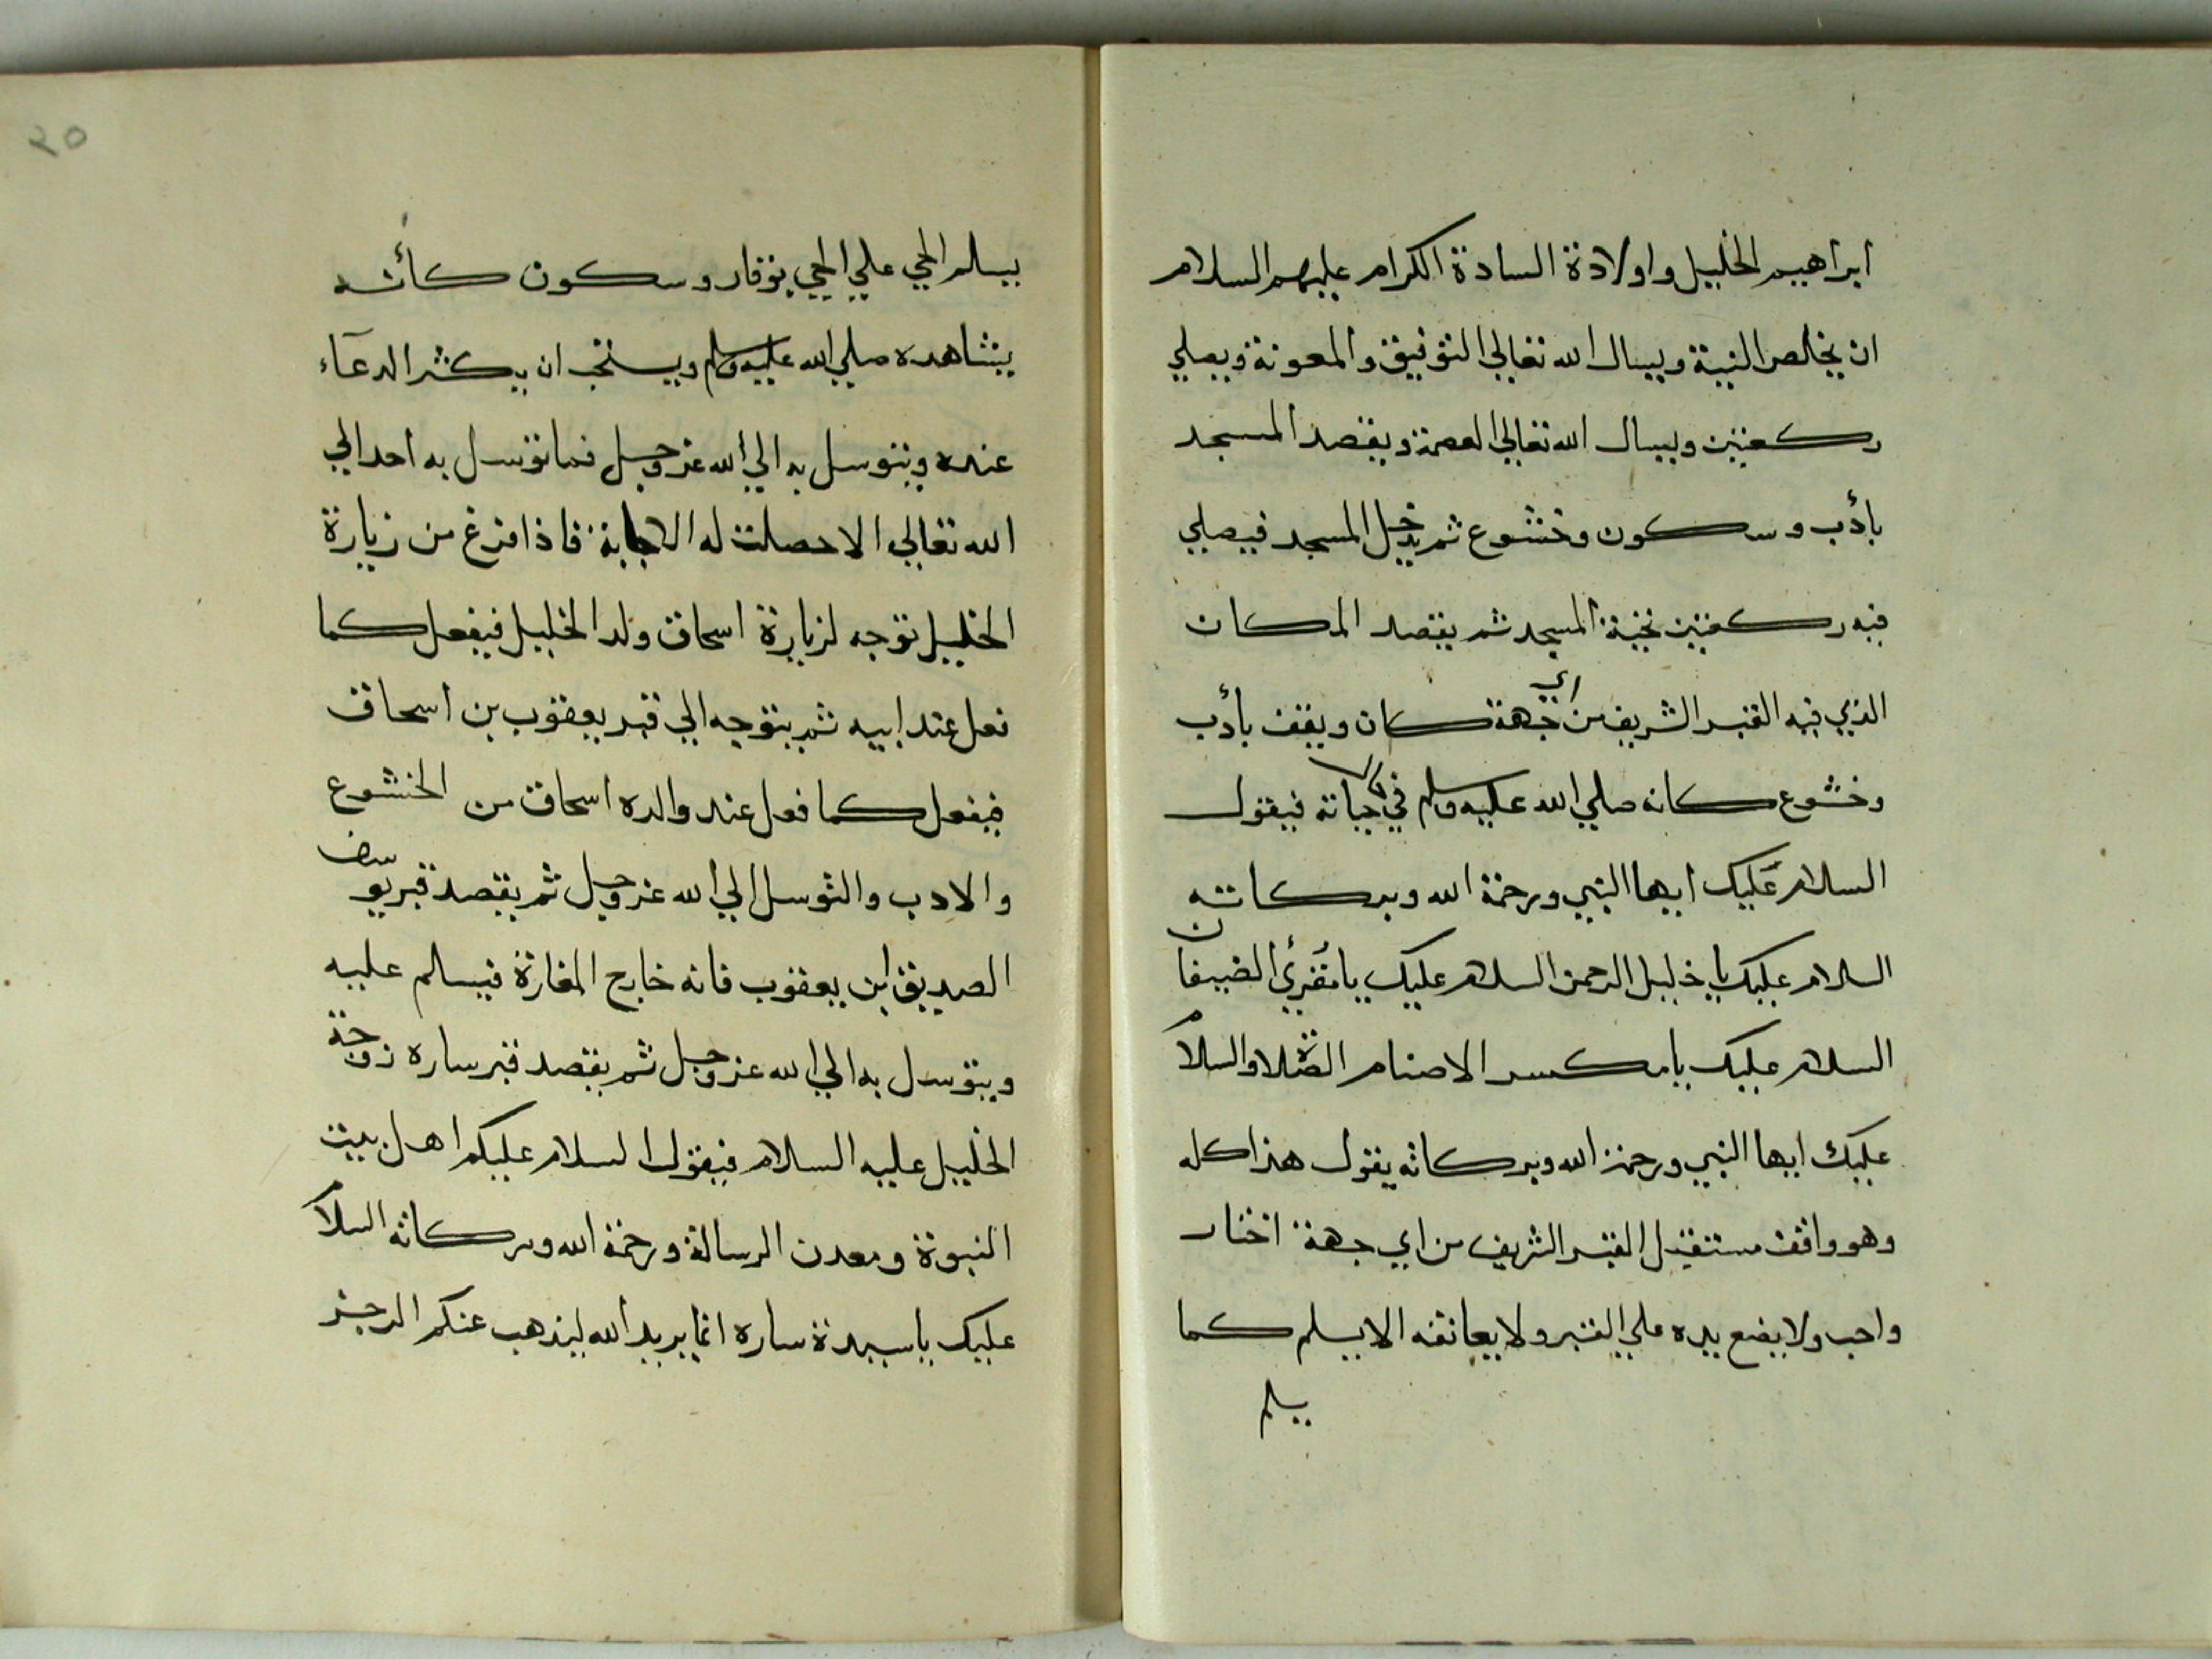 ابراهيم الخليل واولادة السادة الكرام عليهم السلام
ان يخلص النية ويسال الله تعالي التوفيق والمعونة ويصلي
ركعتين ويسال الله تعالي العصمة ويقصد المسجد
بأدب وسكون وخشوع ثم يدخل المسجد فيصلي
فيه ركعتين تحية المسجد ثم يقصد المكان
الذي فيه القبر الشريف من اي جهة كان ويقف بأدب
وخشوع كانه صلي الله عليه وسلم في حياته فيقول
السلام عليك ايها النبي ورحمة الله وبركاته
السلام عليك يا خليل الرحمن السلام عليك يا مُقرئ الضيفان
السلام عليك يا مكسر الاصنام الصلاة والسلام
عليك ايها النبي ورحمة الله وبركاته يقول هذا كله
وهو واقف مستقبل القبر الشريف من اي جهة اختار
واحب ولا يضع يده علي القبر ولا يعانقه الا يسلم كما
يسلم
٢٥
يسلم الحي علي الحي بوقار وسكون كأنه
يشاهده صلي الله عليه وسلم ويستحب ان يكثر الدعآء
عنده ويتوسل به الي الله عز وجل فما توسل به احد الي
الله تعالي الا حصلت له الاجابة فاذا فرغ من زيارة
الخليل توجه لزيارة اسحاق ولد الخليل فيفعل كما
فعل عند ابيه ثم يتوجه الي قبر يعقوب بن اسحاق
فيفعل كما فعل عند والده اسحاق من الخشوع
والادب والتوسل الي الله عز وجل ثم يقصد قبر يوسف
الصديق ابن يعقوب فانه خارج المغارة فيسلم عليه
ويتوسل به الي الله عز وجل ثم يقصد قبر ساره زوجة
الخليل عليه السلام فيقول السلام عليكم اهل بيت
النبوة ومعدن الرسالة ورحمة الله وبركاته السلام
عليك يا سيدة ساره انما يريد الله ليذهب عنكم الرجز